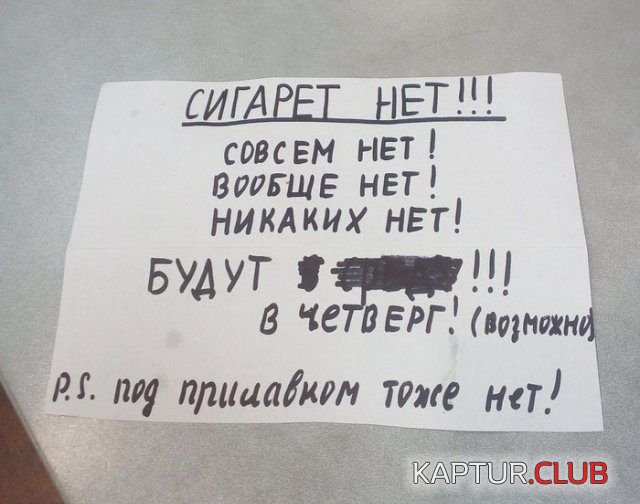 СИГАРЕТ НЕТ!!!
СОВСЕМ НЕТ!
ВООБЩЕ НЕТ!
НИКАКИХ НЕТ!
БУДУТ !!!
В ЧЕТВЕРГ! (возможно)
P.S. под прилавком тоже нет!
KAPTUR.CLUB